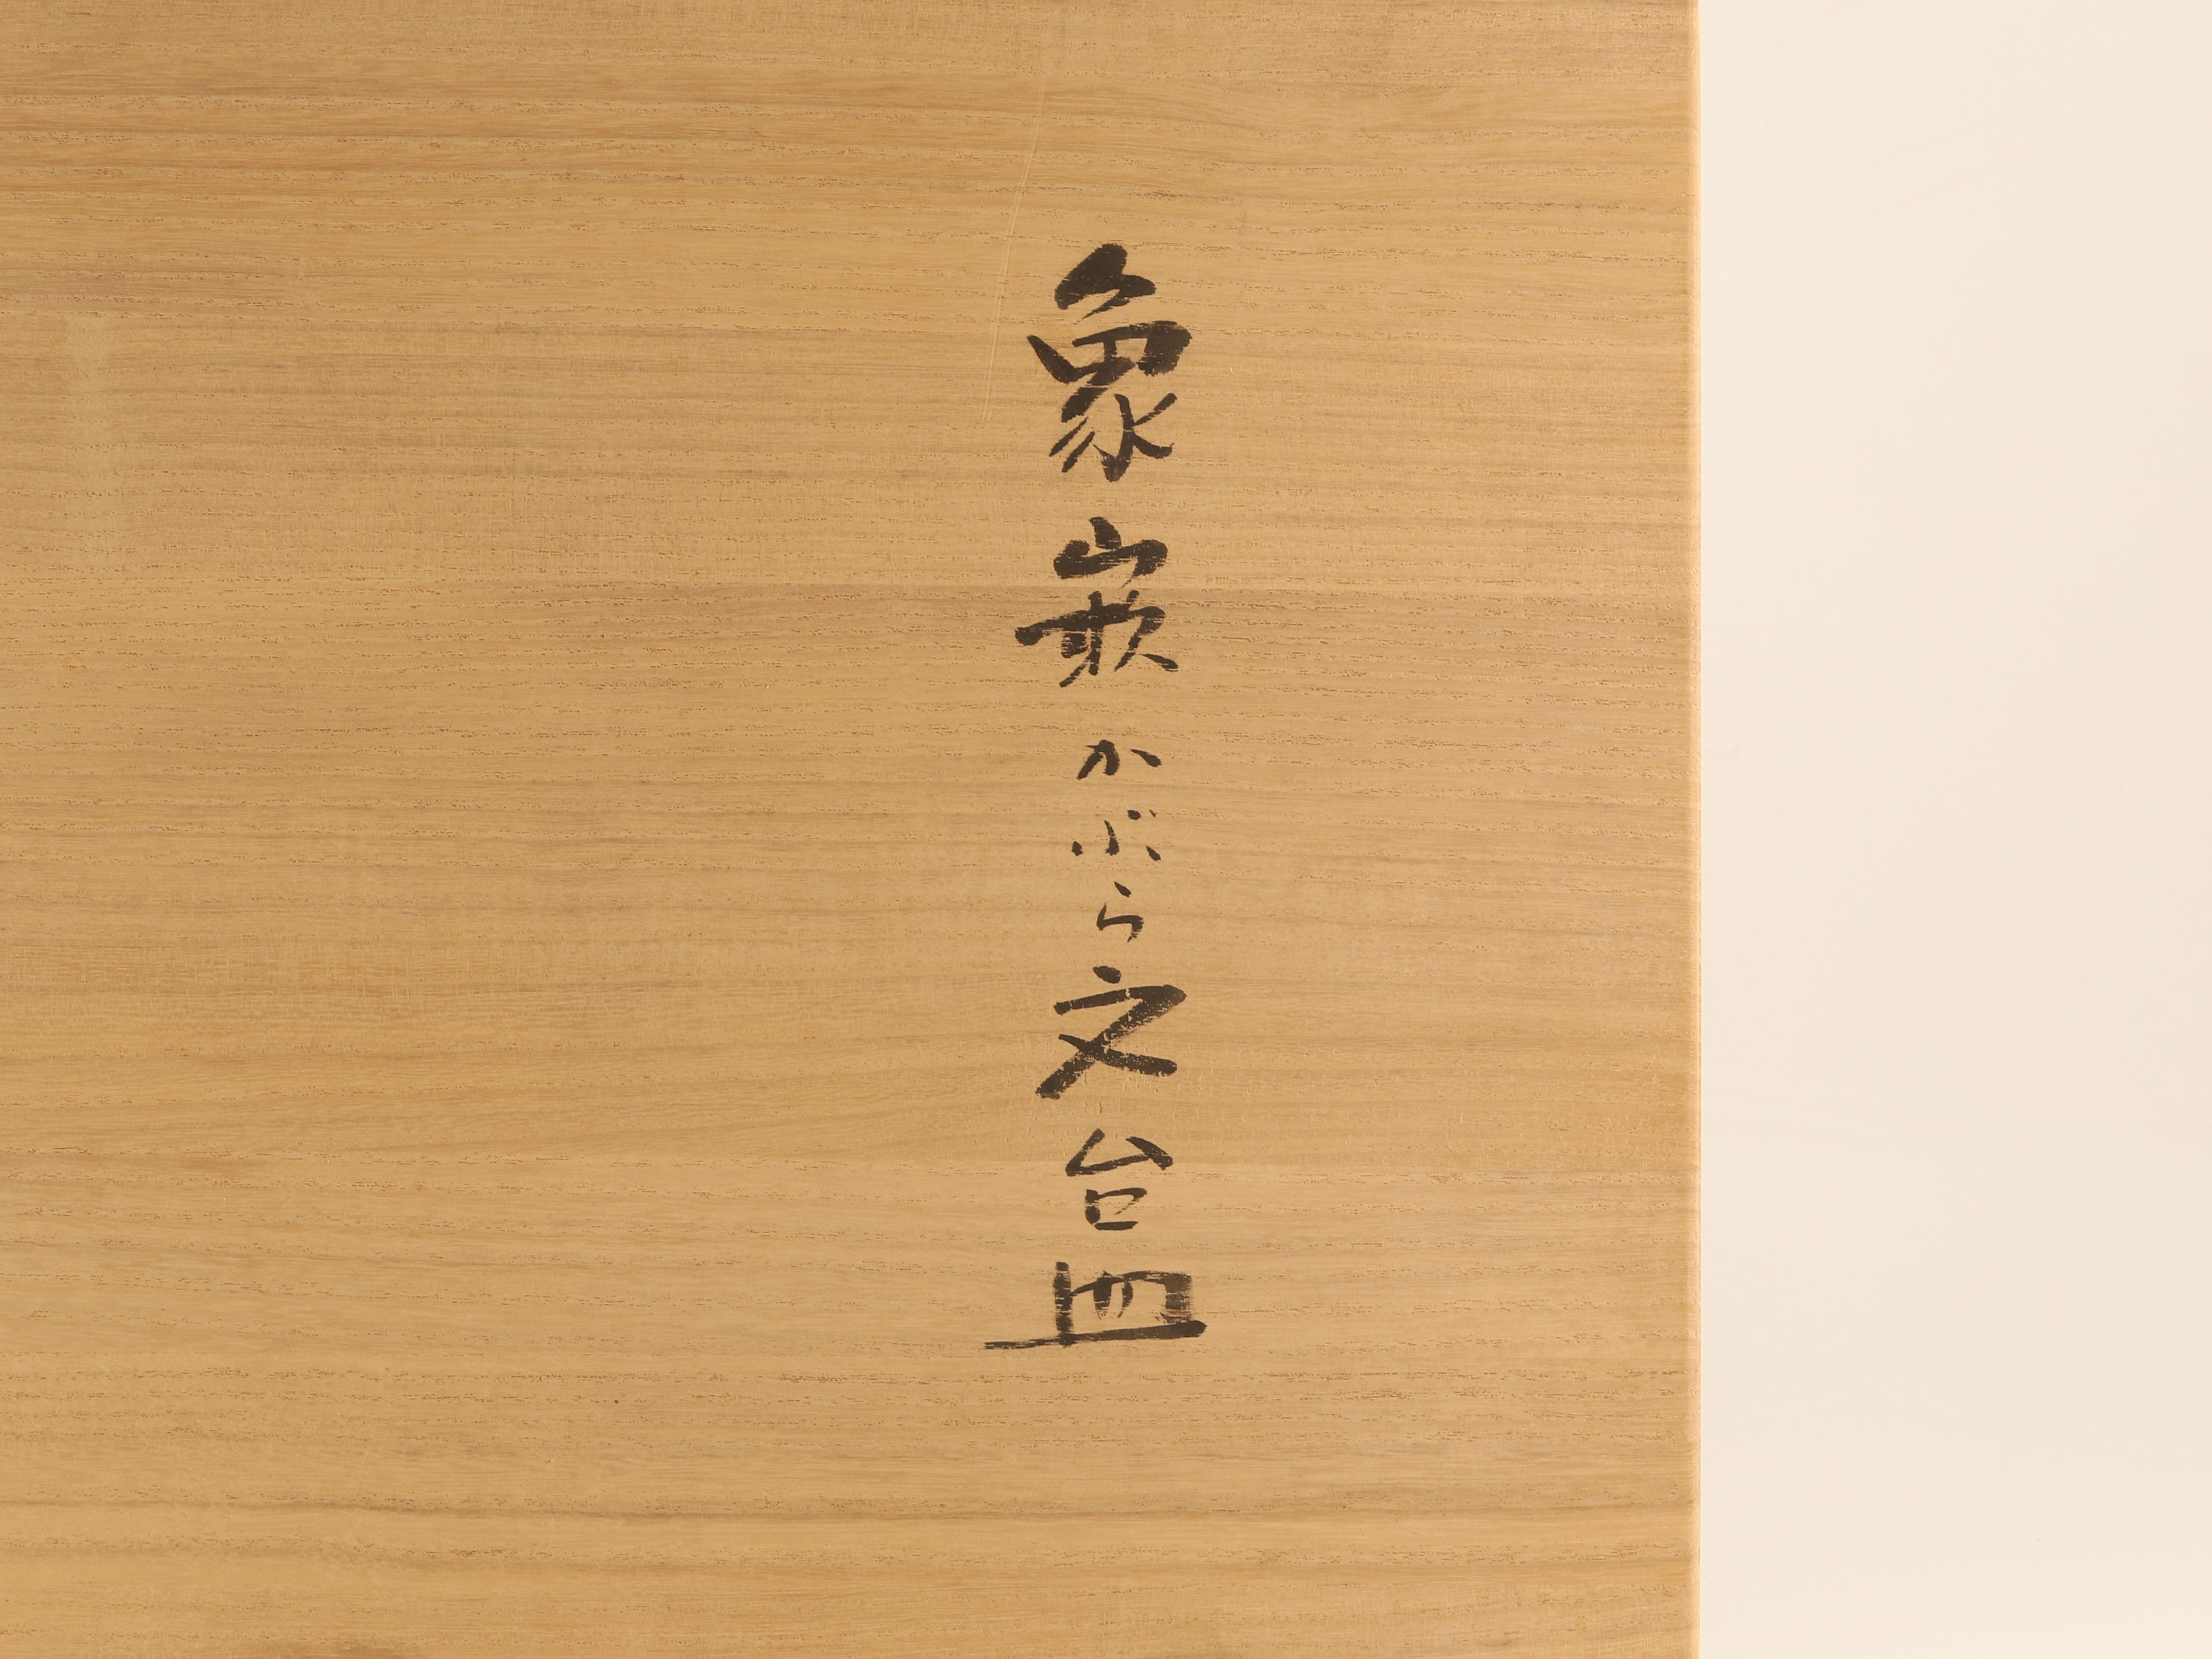 象嵌かぶら文台皿